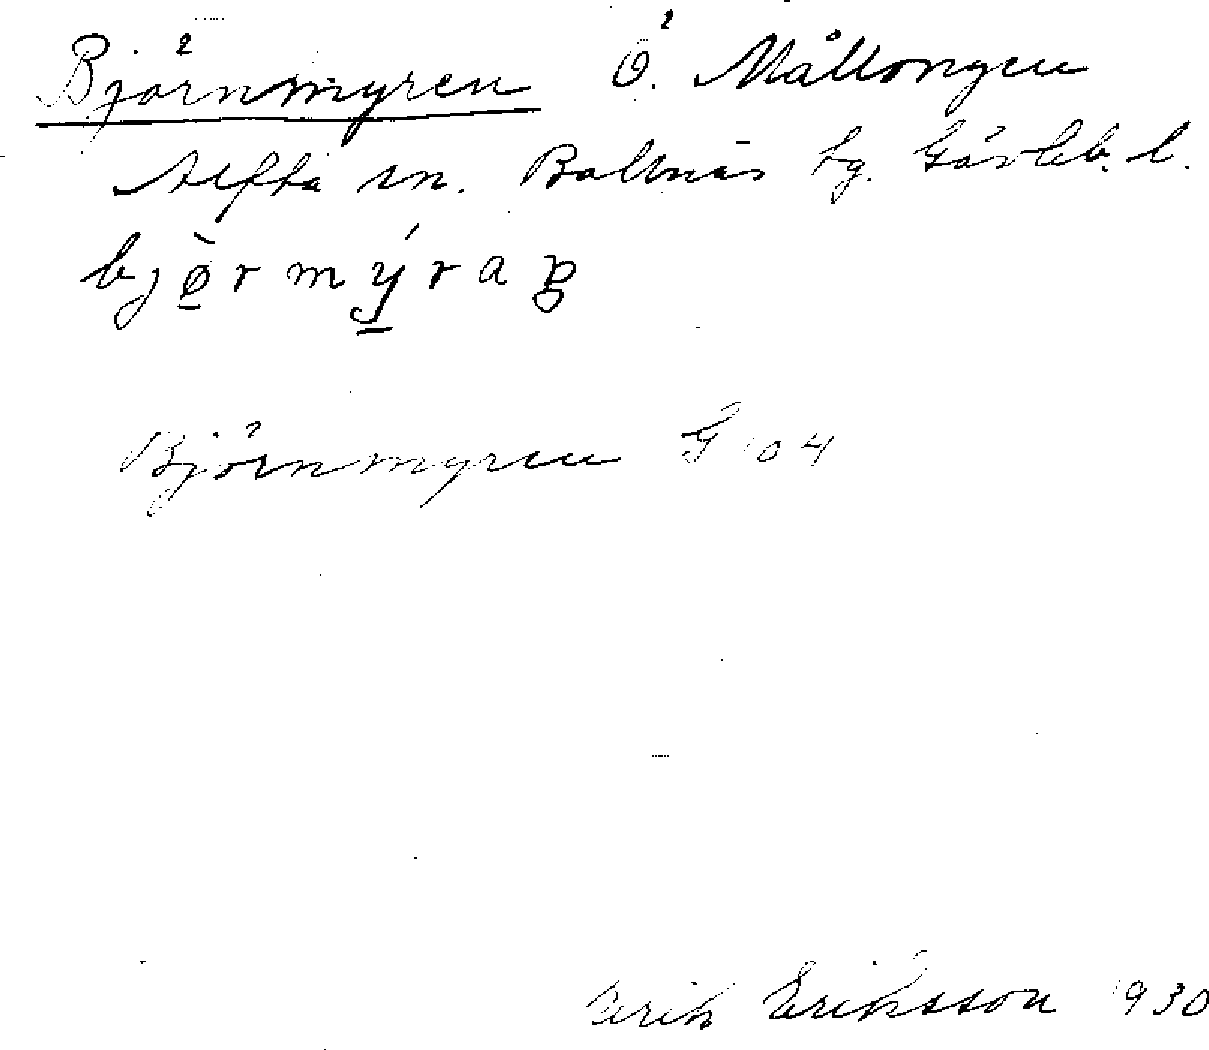 Björnmyren Ö. Mållongen
Alfta sn. Bollnäs tg. Gävleb. l.
bjø̀rmýraŋ
Björnmyren G 104
Erik Eriksson 1930